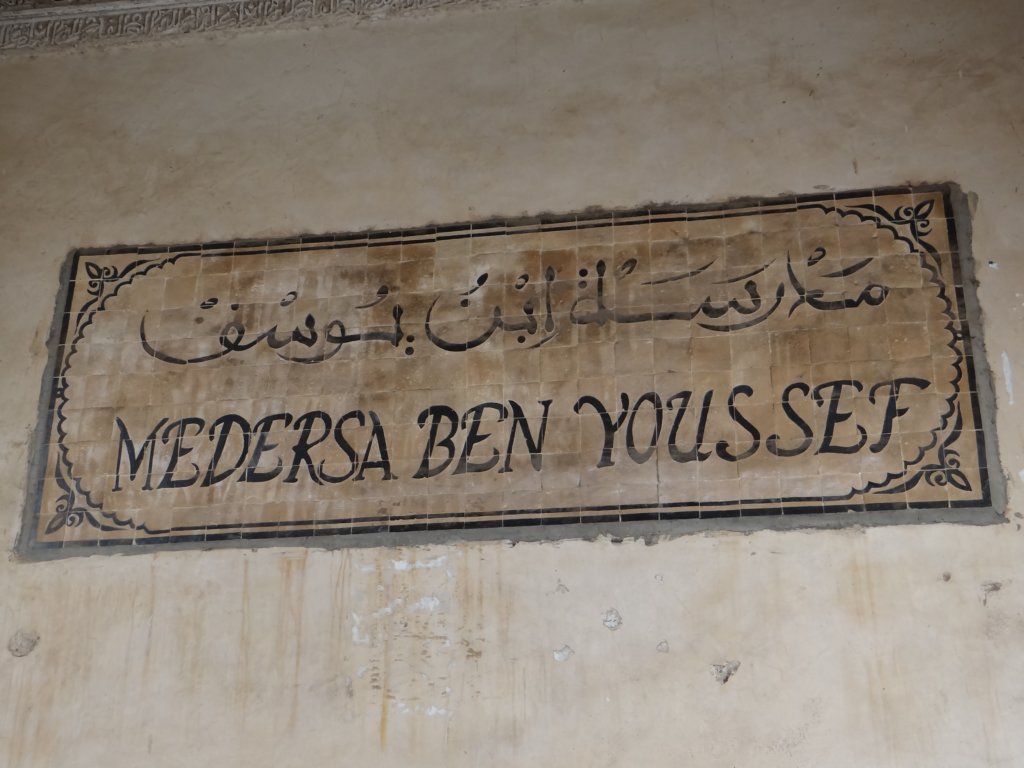 مَدْرَسَة ابْنُ يُوسْفْ
MEDERSA BEN YOUSSEF